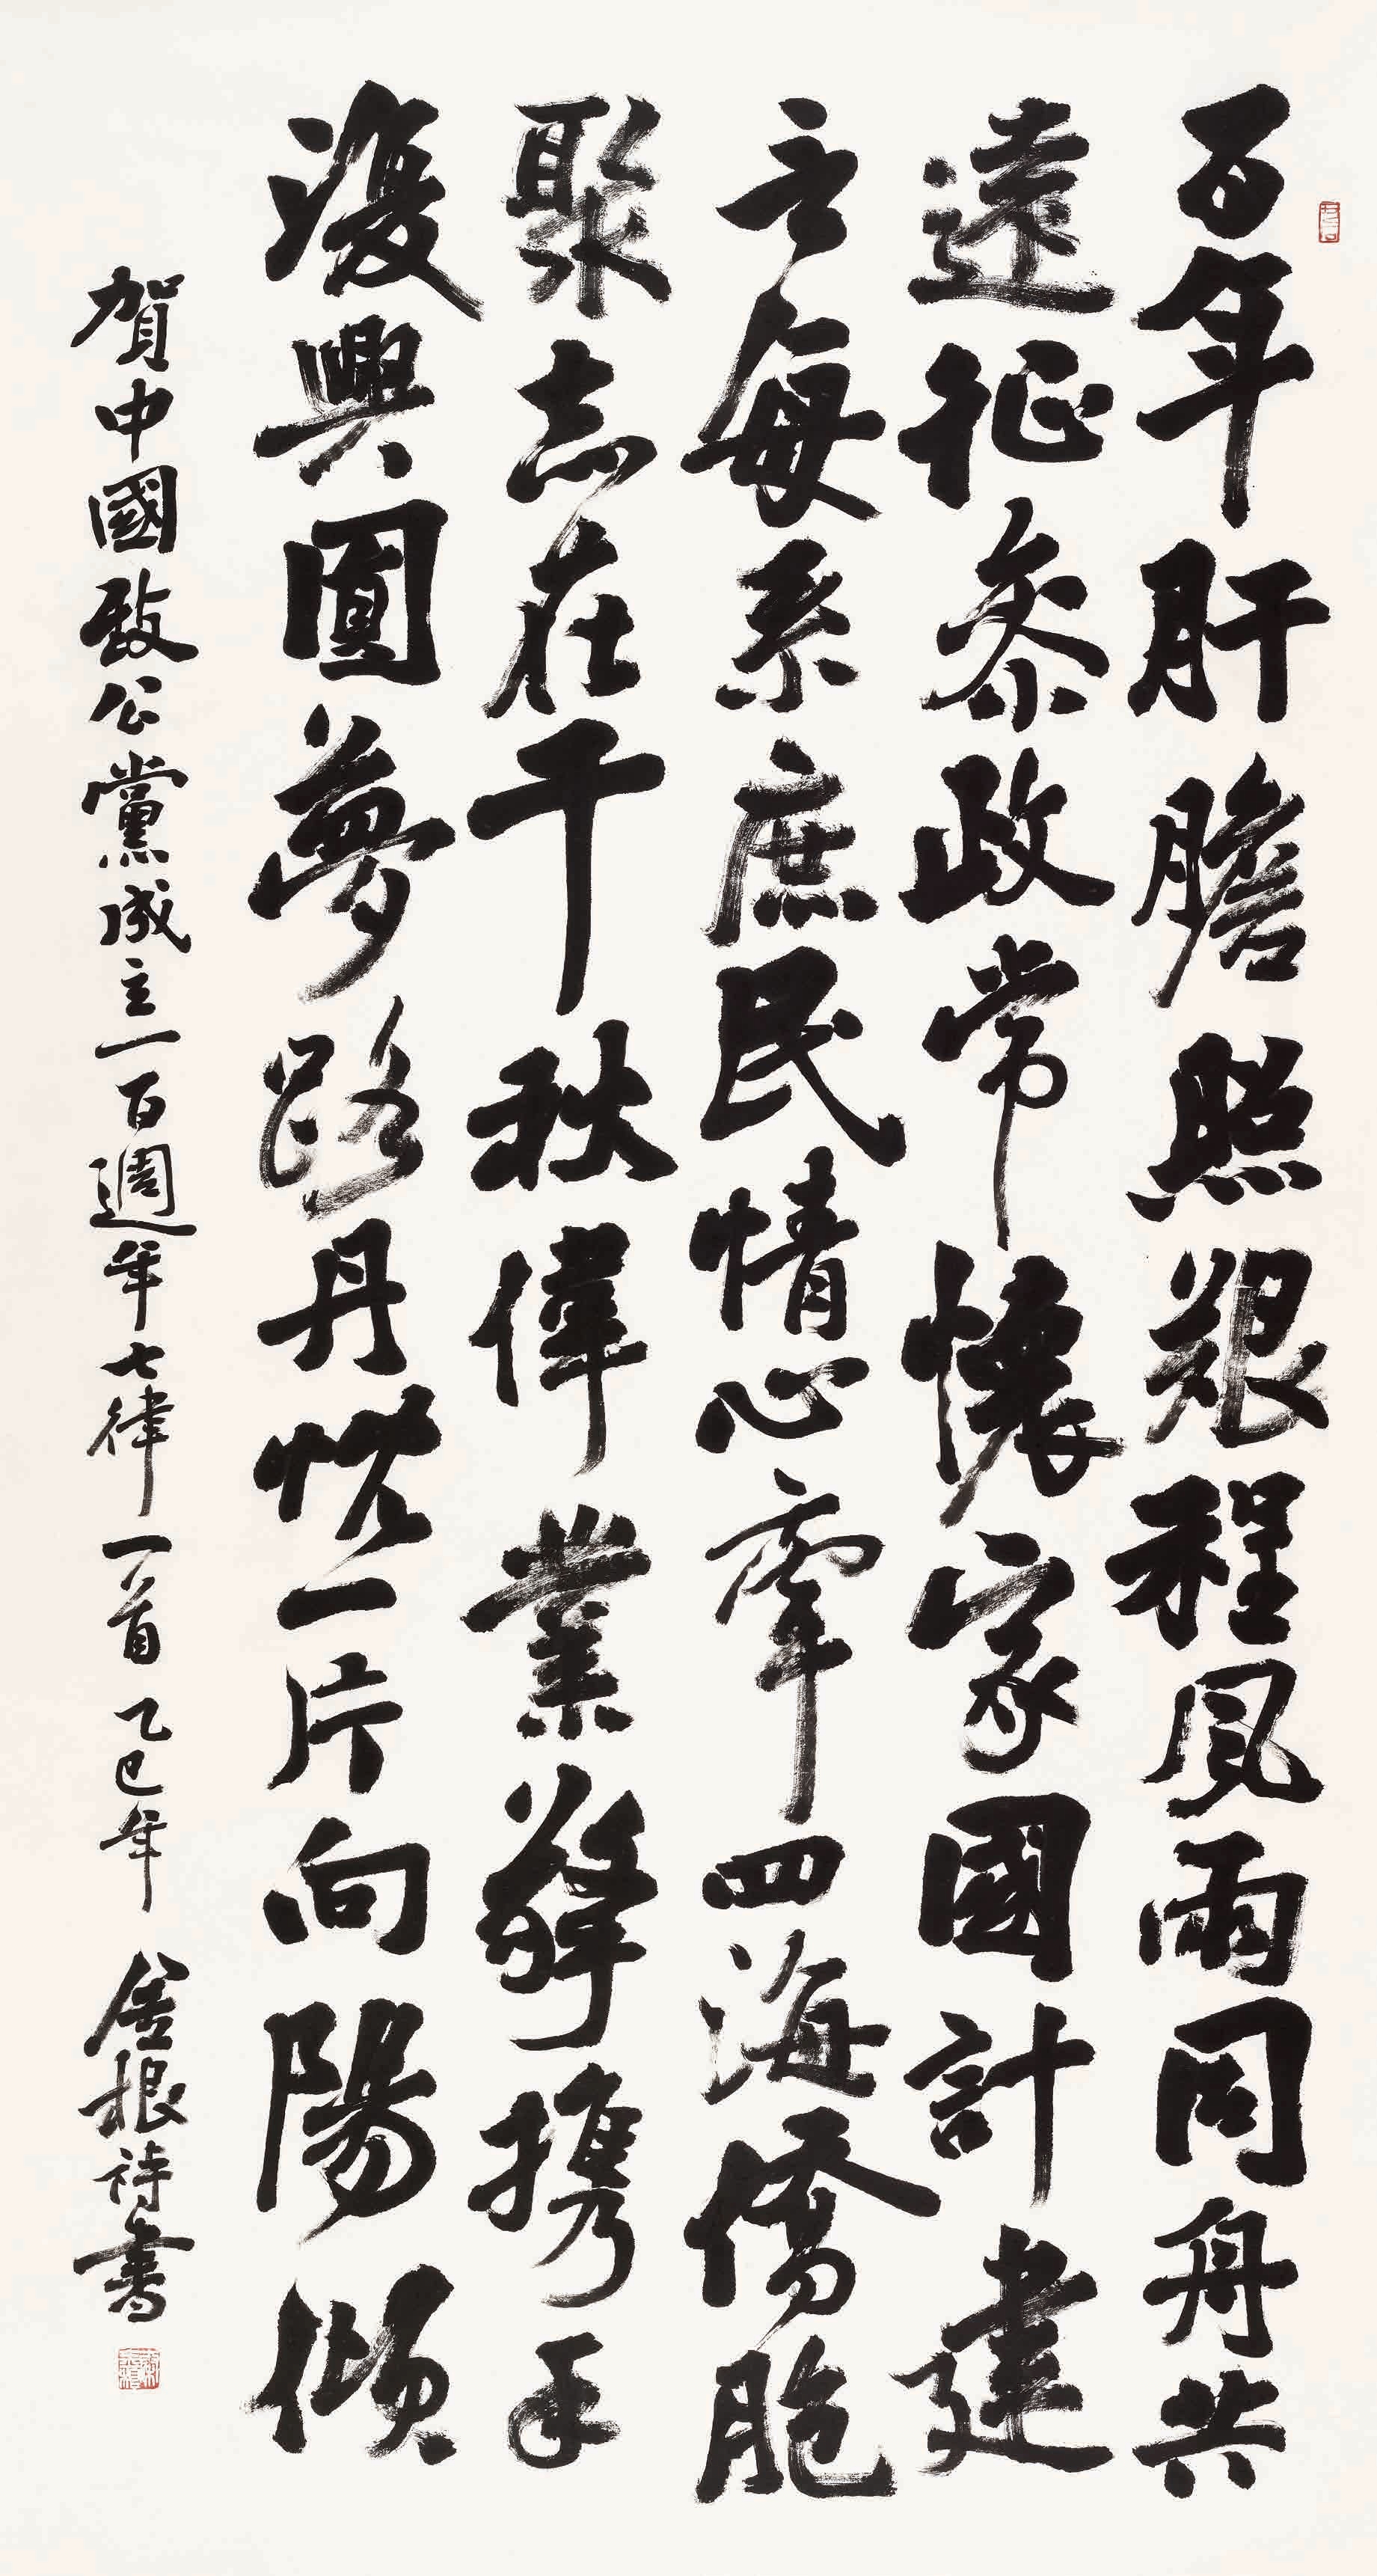 百年肝膽照艱程風雨同舟共
遠征參政常懷家國計建
言每系庶民情心牽四海僑胞
聚志在千秋偉業擎携手
復興圓夢路丹忱一片向陽傾
賀中國致公黨成立一百週年七律一首 乙巳年 金根詩書